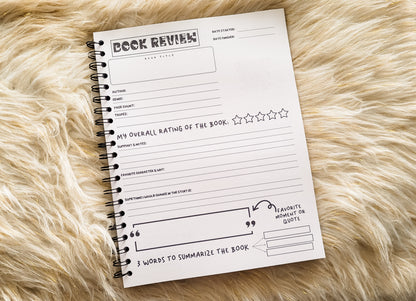 BOOK REVIEW
DATE STARTED:
DATE FINISHED:
BOOK TITLE
AUTHOR:
GENRE:
PAGE COUNT:
TROPES:
MY OVERALL RATING OF THE BOOK:
THOUGHTS & NOTES:
FAVORITE CHARACTER & WHY:
SOMETHING I WOULD CHANGE IN THE STORY IS:
FAVORITE
MOMENT OR
QUOTE
3 WORDS TO SUMMARIZE THE BOOK